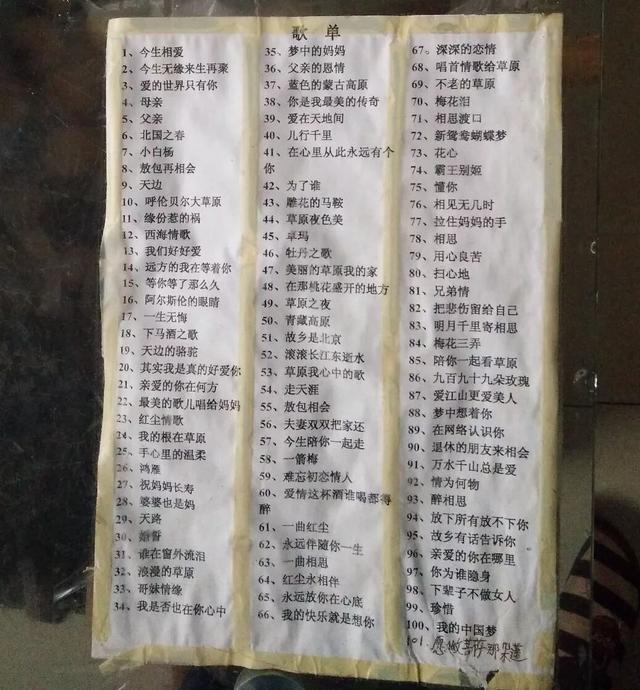 歌 单
1、今生相爱
2、今生无缘来生再聚
3、爱的世界只有你
4、母亲
5、父亲
6、北国之春
7、小白杨
8、敖包再相会
9、天边
10、呼伦贝尔大草原
11、缘份惹的祸
12、西海情歌
13、我们好好爱
14、远方的我在等着你
15、等你等了那么久
16、阿尔斯伦的眼睛
17、一生无悔
18、下马酒之歌
19、天边的骆驼
20、其实我是真的好爱你
21、亲爱的你在何方
22、最美的歌儿唱给妈妈
23、红尘情歌
24、我的根在草原
25、手心里的温柔
26、鸿雁
27、祝妈妈长寿
28、婆婆也是妈
29、天路
30、婚誓
31、谁在窗外流泪
32、浪漫的草原
33、哥妹情缘
34、我是否也在你心中
35、梦中的妈妈
36、父亲的恩情
37、蓝色的蒙古高原
38、你是我最美的传奇
39、爱在天地间
40、儿行千里
41、在心里从此永远有个
你
42、为了谁
43、雕花的马鞍
44、草原夜色美
45、卓玛
46、牡丹之歌
47、美丽的草原我的家
48、在那桃花盛开的地方
49、草原之夜
50、青藏高原
51、故乡是北京
52、滚滚长江东逝水
53、草原我心中的歌
54、走天涯
55、敖包相会
56、夫妻双双把家还
57、今生陪你一起走
58、一箭梅
59、难忘初恋情人
60、爱情这杯酒谁喝都得
醉
61、一曲红尘
62、永远伴随你一生
63、一曲相思
64、红尘永相伴
65、永远放你在心底
66、我的快乐就是想你
67。深深的恋情
68、唱首情歌给草原
69、不老的草原
70、梅花泪
71、相思渡口
72、新鸳鸯蝴蝶梦
73、花心
74、霸王别姬
75、懂你
76、相见无几时
77、拉住妈妈的手
78、相思
79、用心良苦
80、扫心地
81、兄弟情
82、把悲伤留给自己
83、明月千里寄相思
84、梅花三弄
85、陪你一起看草原
86、九百九十九朵玫瑰
87、爱江山更爱美人
88、梦中想着你
89、在网络认识你
90、退休的朋友来相会
91、万水千山总是爱
92、情为何物
93、醉相思
94、放下所有放不下你
95、故乡有话告诉你
96、亲爱的你在哪里
97、你为谁隐身
98、下辈子不做女人
99、珍惜
100、我的中国梦
101、愿做菩萨那朵莲